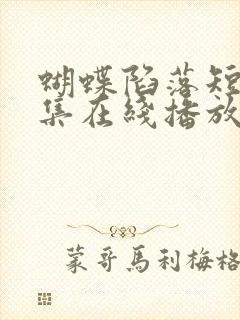 蝴蝶陷落短
集在綫播放
蒙哥馬利梅格